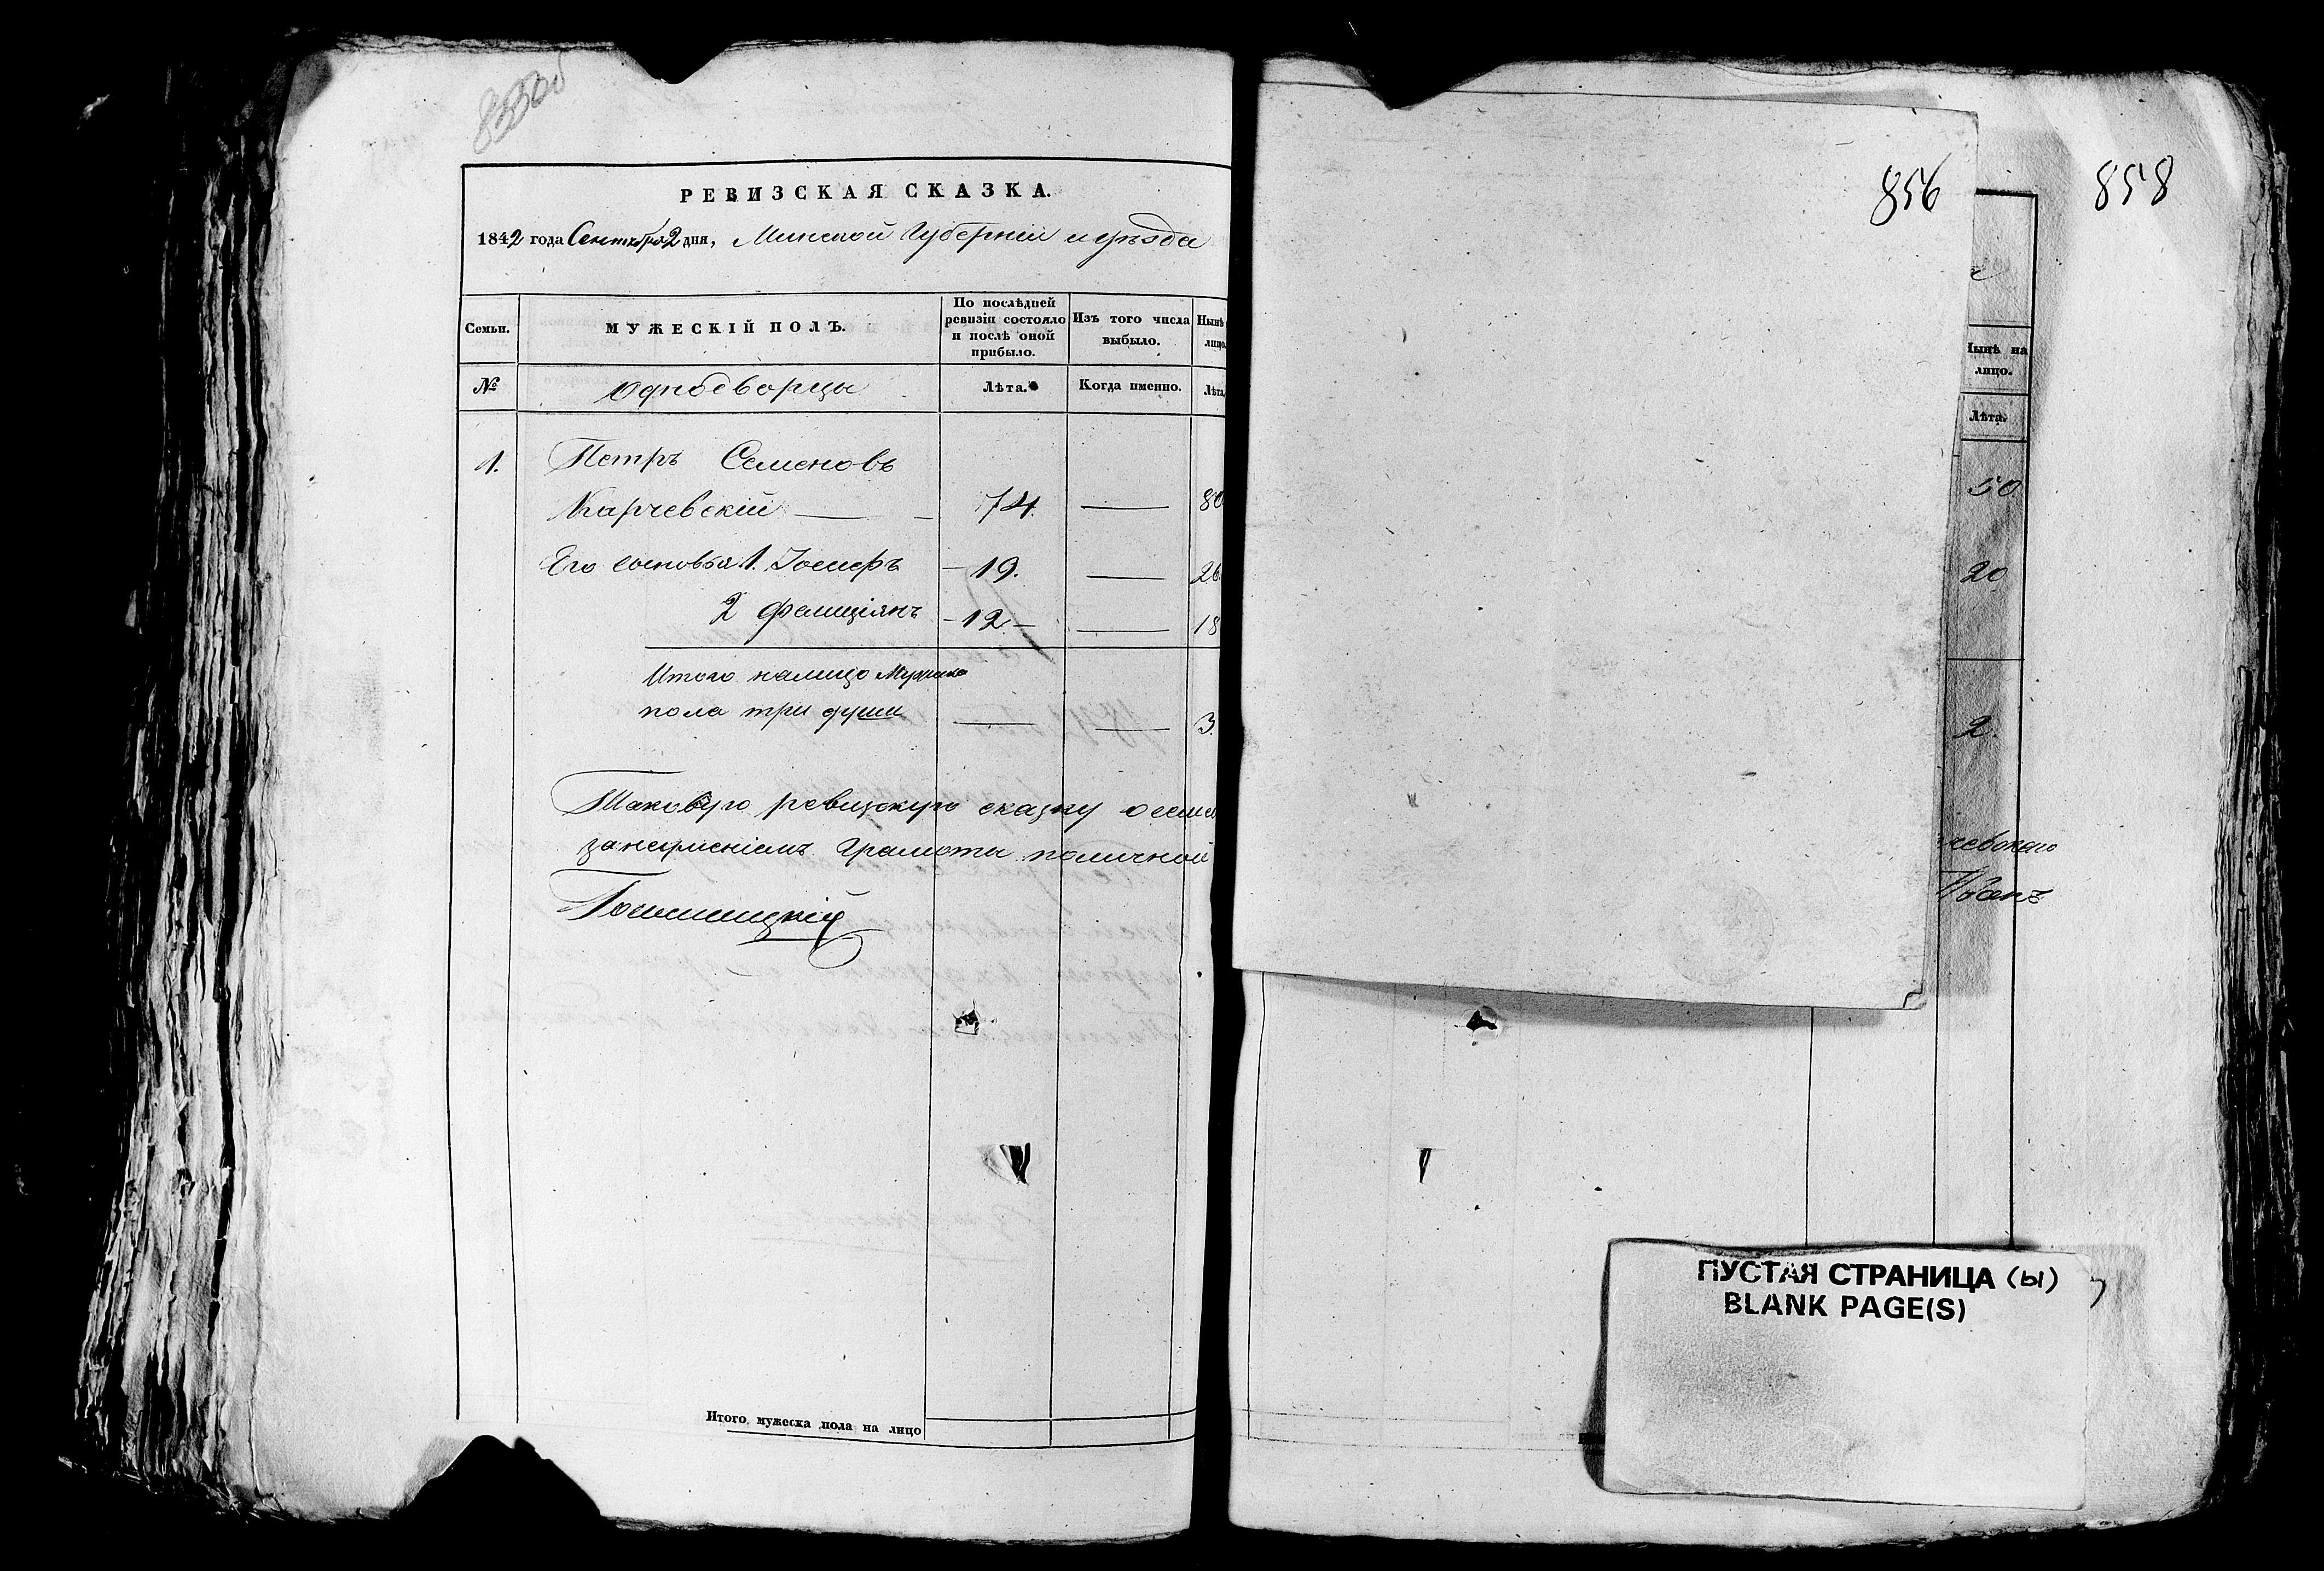 РЕВИЗСКАЯ СКАЗКА.
1842 года Сентября 2 дня, Минской Губерніи и уѣзда
Семьи.
МУЖЕСКІЙ ПОЛЪ.
По послѣдней ревизіи состояло и послѣ оной прибыло.
Изъ того числа выбыло.
Нынѣ
лицо.
№
Однодворцы
Лѣта.
Когда именно.
Лѣта.
1. Петръ Семеновъ
Карчевскій 74. 80
Его сыновья 1. Іосифъ 19. 26.
2 Фелиціянъ 12. 18
Итого налицо Мужеска
пола три души 3.
Таковую ревизскую сказку
за неумѣніемъ Грамоты
Итого мужеска пола на лицо
856
858
Нынѣ на
лицо.
Лѣта.
50
20
2.
чевскаго
Иванъ
ПУСТАЯ СТРАНИЦА (Ы)
BLANK PAGE(S)